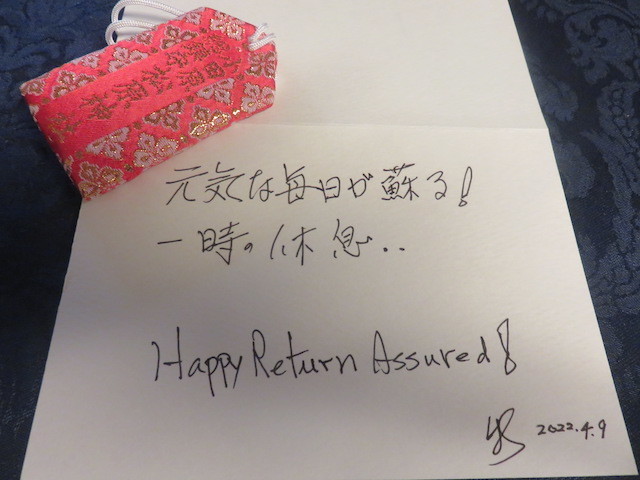 元気な毎日が蘇る!
一時の休息..
Happy Return Assured!
2022.4.9